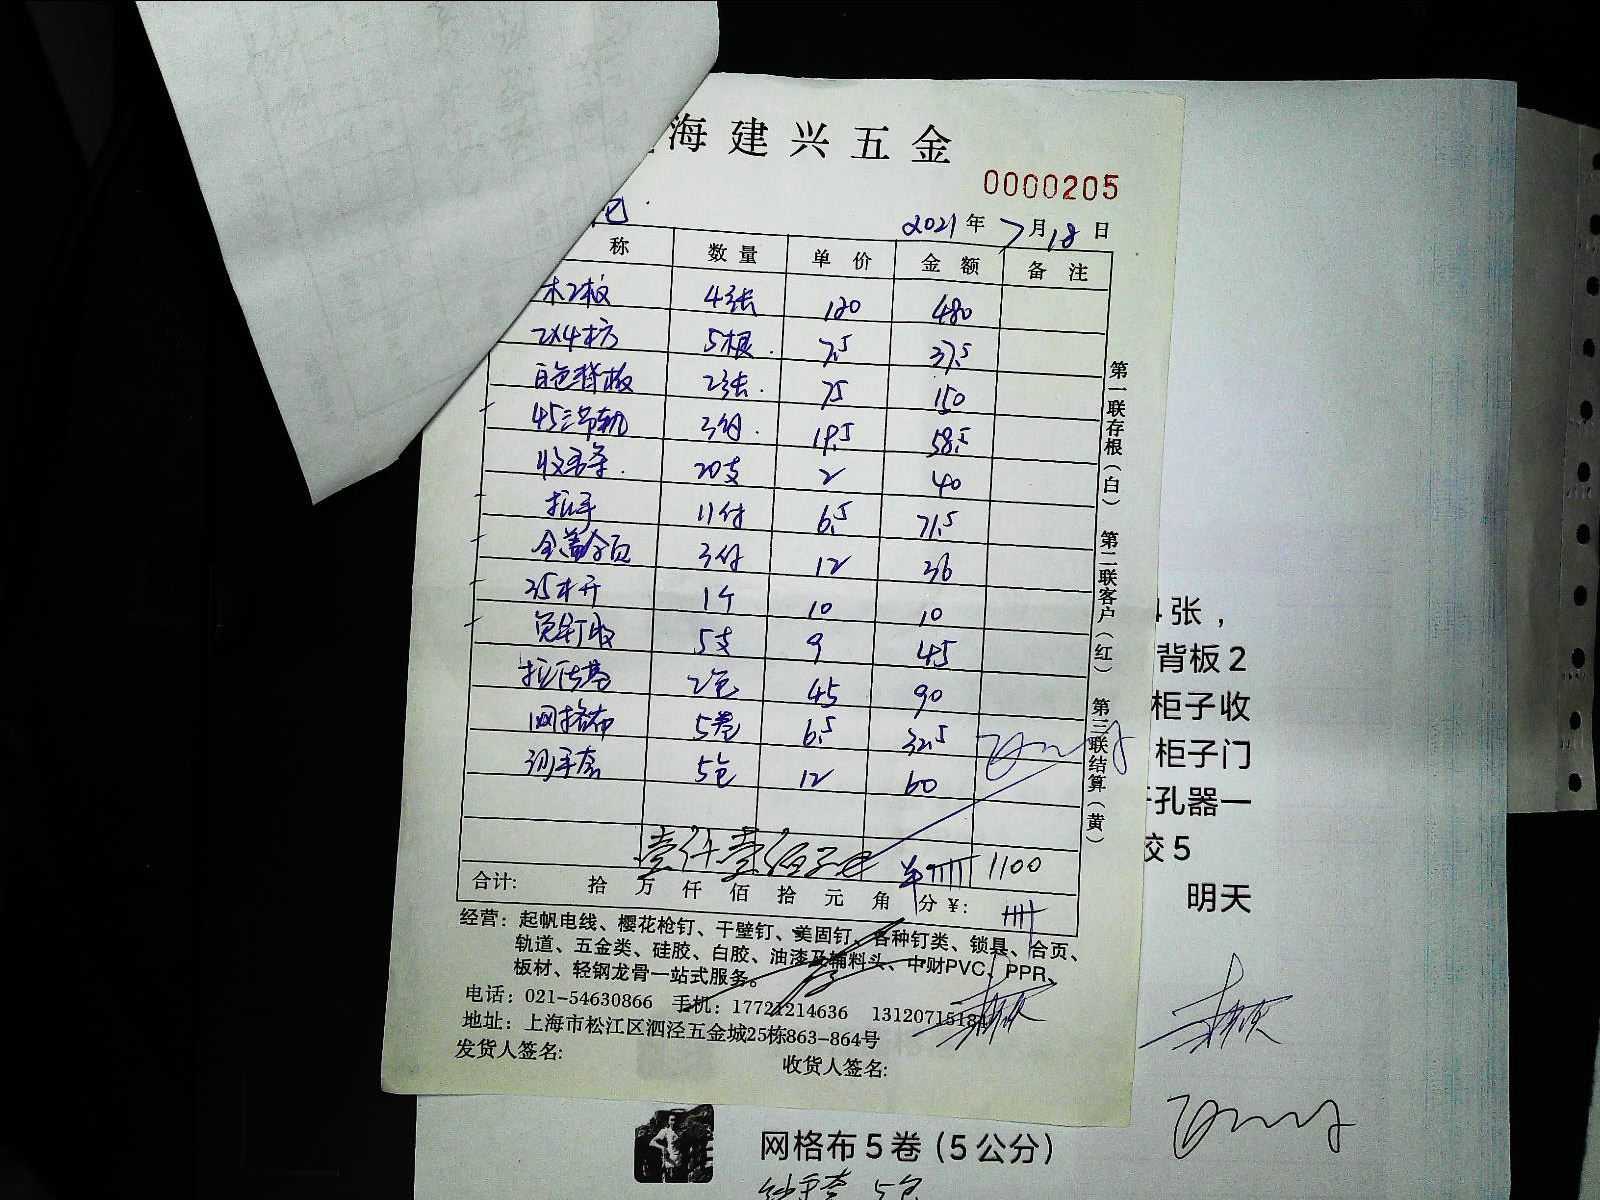 海建兴五金
0000205
2021年7月18日
称 数量 单价 金额 备注
4张 120 480
2X4木方 5根 7.5 37.5
白色背板 2张 75 150
45三节轨 3付 19.5 58.5
收口条 20支 2 40
拉手 11付 6.5 71.5
全盖合页 3付 12 36
35木开 1个 10 10
免钉胶 5支 9 45
拉法基 2包 45 90
网格布 5卷 6.5 32.5
纱手套 5包 12 60
壹仟壹佰 1100
合计: 拾 万 仟 佰 拾 元 角 分¥:
第一联存根(白) 第二联客户(红) 第三联结算(黄)
经营:起帆电线、樱花枪钉、干壁钉、美固钉、各种钉类、锁具、合页、
轨道、五金类、硅胶、白胶、油漆及辅料头、中财PVC、PPR、
板材、轻钢龙骨一站式服务。
电话:021-54630866 手机:17721214636
地址:上海市松江区泗泾五金城25栋863-864号
发货人签名: 收货人签名:
4张,
背板2
柜子收
柜子门
开孔器一
胶5
明天
网格布5卷(5公分)
纱手套 5包